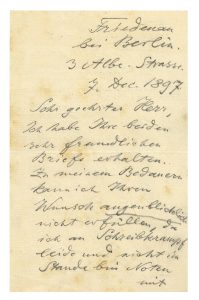 Friedenau
bei Berlin.
3 Albe-Strasse.
7. Dec. 1897
Sehr geehrter Herr,
Ich habe Ihre beiden
sehr freundlichen
Briefe erhalten.
Zu meinem Bedauern
kann ich Ihren
Wunsch augenblicklich
nicht erfüllen, da
ich an Schreibkrampf
leide und nicht im
Stande bin Noten
mit